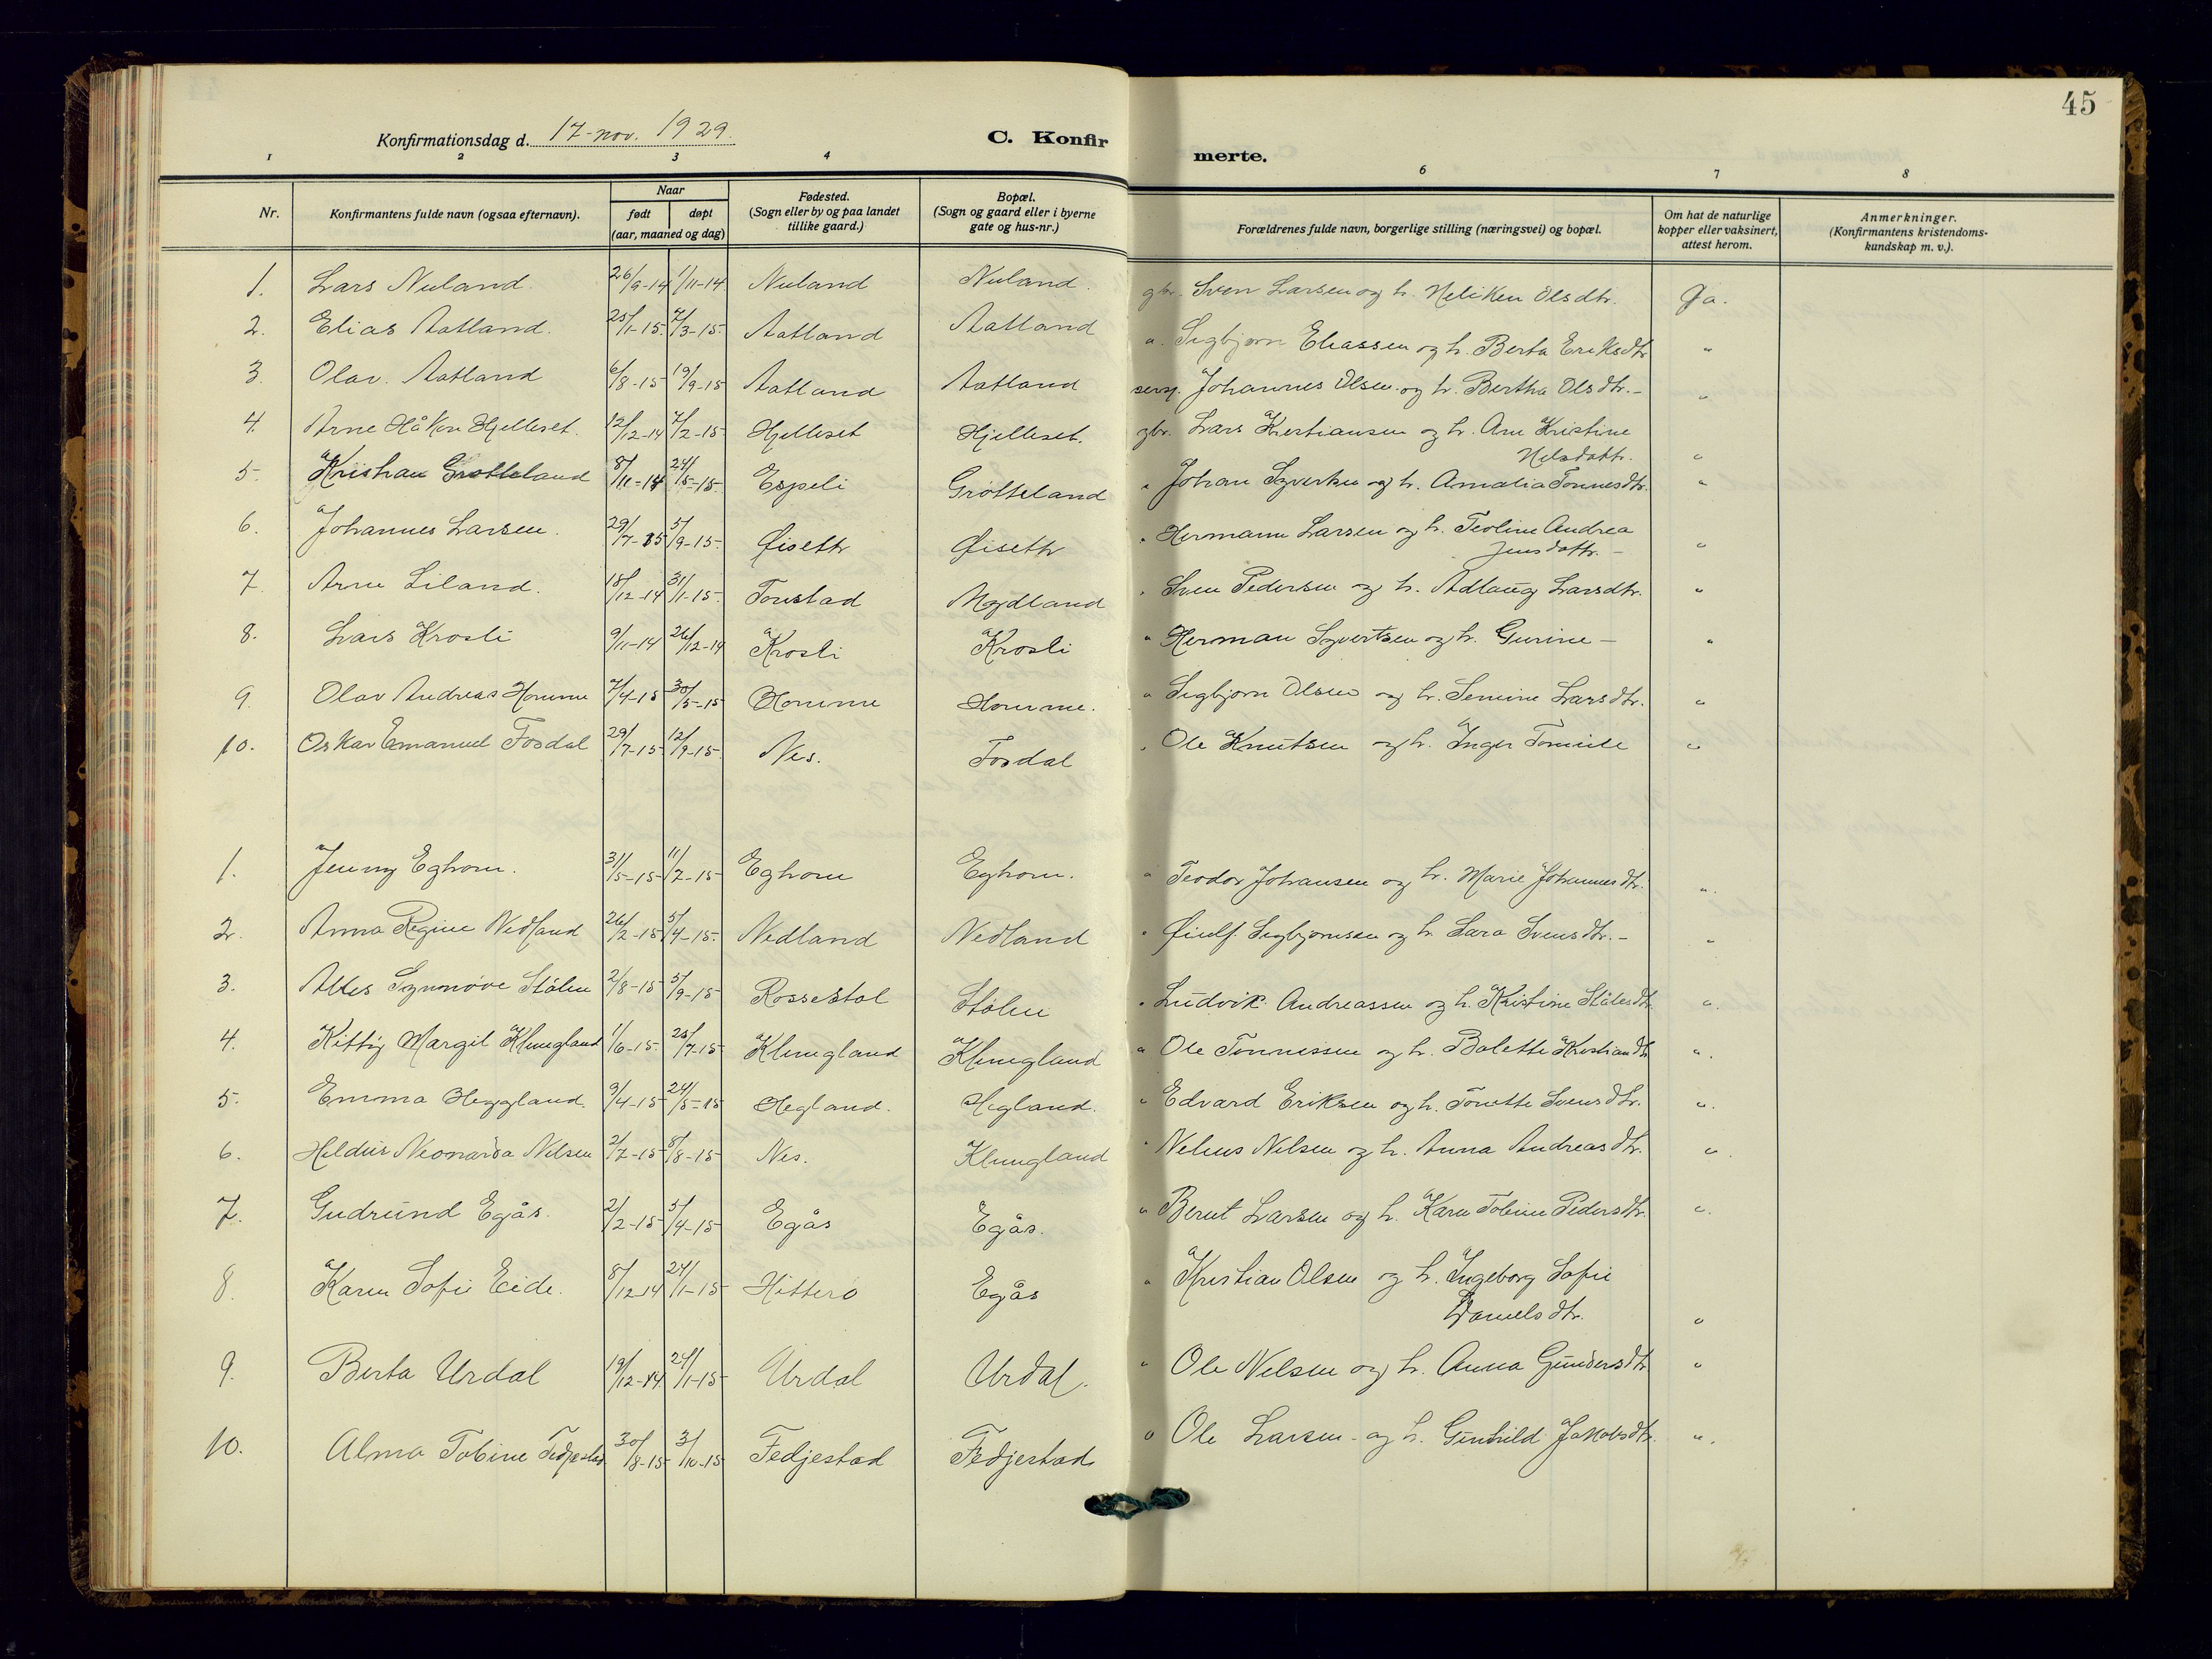 45
Konfirmationsdag d. 17-nov. 1929.
C. Konfir merte.
1 2 3 4 6 7 8
Nr. Konfirmantens fulde navn (ogsaa efternavn). Naar født døpt (aar, maaned og dag) Fødested. (Sogn eller by og paa landet tillike gaard.) Bopæl. (Sogn og gaard eller i byerne gate og hus-nr.) Forældrenes fulde navn, borgerlige stilling (næringsvei) og bopæl. Om hat de naturlige kopper eller vaksinert, attest herom. Anmerkninger. (Konfirmantens kristendoms-kundskap m. v.).
1. Lars Nuland. 26/9-14 1/11-14 Nuland Nuland. gbr. Sven Larsen og h. Neliken Olsdtr. Ja.
2. Elias Aatland. 25/1-15. 7/3-15. Aatland Aatland " Sigbjørn Eliassen og h. Berta Eriksdtr "
3. Olav. Aatland 6/8-15 19/9-15 Aatland Aatland Johannes Olsen og h. Bertha Olsdtr. - "
4. Arne Håkon Hjelleset. 12/12-14 7/2-15 Hjelleset Hjelleset. gbr. Lars Kristiansen og h. Ane Kristine
Nilsdatr. "
5. Kristian Grøtteland 8/11-14 24/5-15. Espeli Grøtteland " Johan Syvertsen og h. Amalia Tønnesdtr. "
6. Johannes Larsen. 29/7-15 5/9-15. Øisettr Øisettr " Hermann Larsen og h. Teoline Andrea
Jensdattr. - "
7. Arne Liland. 18/12-14 31/1-15. Tonstad Mydland " Sven Pedersen og h. Adlaug Larsdtr. "
8. Lars Krosli 9/11-14 26/12-14 Krosli Krosli " Herman Syvertsen og h. Gurine - "
9. Olav Andreas Homme 7/4-15 30/5-15 Homme Homme. " Sigbjørn Olsen og h. Semine Larsdtr. "
10. Oskar Emanuel Fosdal 29/7-15 12/9-15. Nes. Fosdal " Ole Knutsen og h. Inger Tomine "
1. Jenny Eghom. 31/5-15 11/7-15 Eghom Eghom. " Teodor Johansen og h. Marie Johannesdtr. "
2. Anna Regine Nedland 26/2-15 5/4-15. Nedland Nedland " Øiulf Sigbjørnsen og h. Sara Svensdtr. - "
3. Alles Synnøve Stølen 2/8-15 5/9-15 Rossestøl Stølen " Ludvik Andreassen og h. Kristine Ståledtr "
4. Kitty Margit Klungland 1/6-15 25/7-15 Klungland Klungland " Ole Tønnessen og h. Bolette Kristiandtr "
5. Emma Heggland. 9/4-15 24/5-15 Hegland. Hegland. " Edvard Eriksen og h. Tonette Svensdtr. "
6. Hildus Neonarda Nilsen 2/7-15 8/8-15 Nes. Klungland " Nelius Nilsen og h. Anna Andreasdtr. "
7. Gudrund Egås. 2/2-15 5/4-15 Egås Egås. " Bernt Larsen og h. Karen Tobine Pedersdtr. "
8. Karen Sofie Eide. 8/12-14 24/1-15 Hitterø Egås " Kristian Olsen og h. Ingeborg Sofie
Danielsdtr. "
9. Berta Urdal 19/12-14 24/1-15 Urdal Urdal. " Ole Nilsen og h. Anna Gundersdtr "
10. Alma Tobine Fedjestad 30/8-15 3/10-15 Fedjestad Fedjestad " Ole Larsen og h. Gunhild Jakobsdtr. "